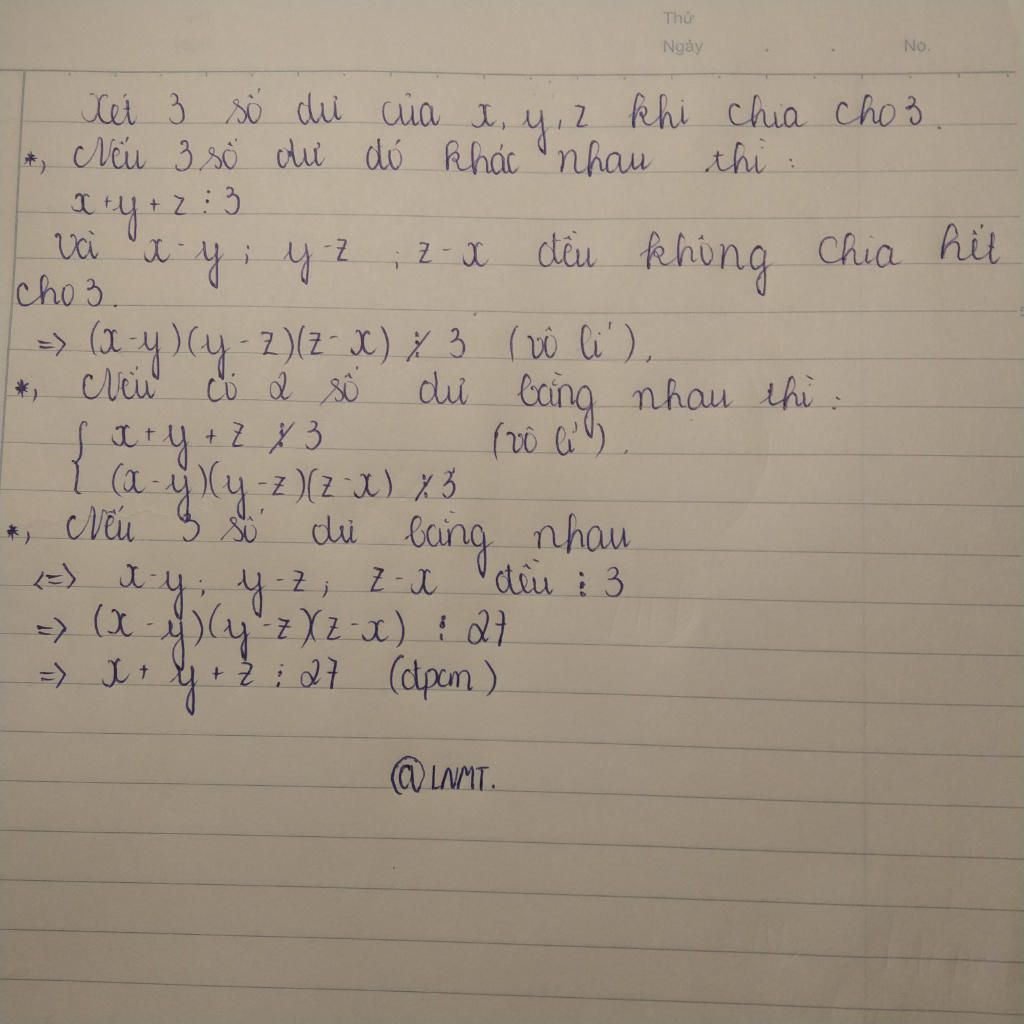 Thứ
Ngày . . No.
Xét 3 số dư của x, y, z khi chia cho 3.
*, Nếu 3 số dư đó khác nhau thì:
x+y+z ⋮ 3
Và x-y; y-z; z-x đều không chia hết
cho 3.
=> (x-y)(y-z)(z-x) ⋮̸ 3 (vô lí).
*, Nếu có 2 số dư bằng nhau thì:
{ x+y+z ⋮̸ 3 (vô lí).
(x-y)(y-z)(z-x) ⋮̸ 3
*, Nếu 3 số dư bằng nhau
<=> x-y; y-z; z-x đều ⋮ 3
=> (x-y)(y-z)(z-x) ⋮ 27
=> x+y+z ⋮ 27 (đpcm)
@LNMT.